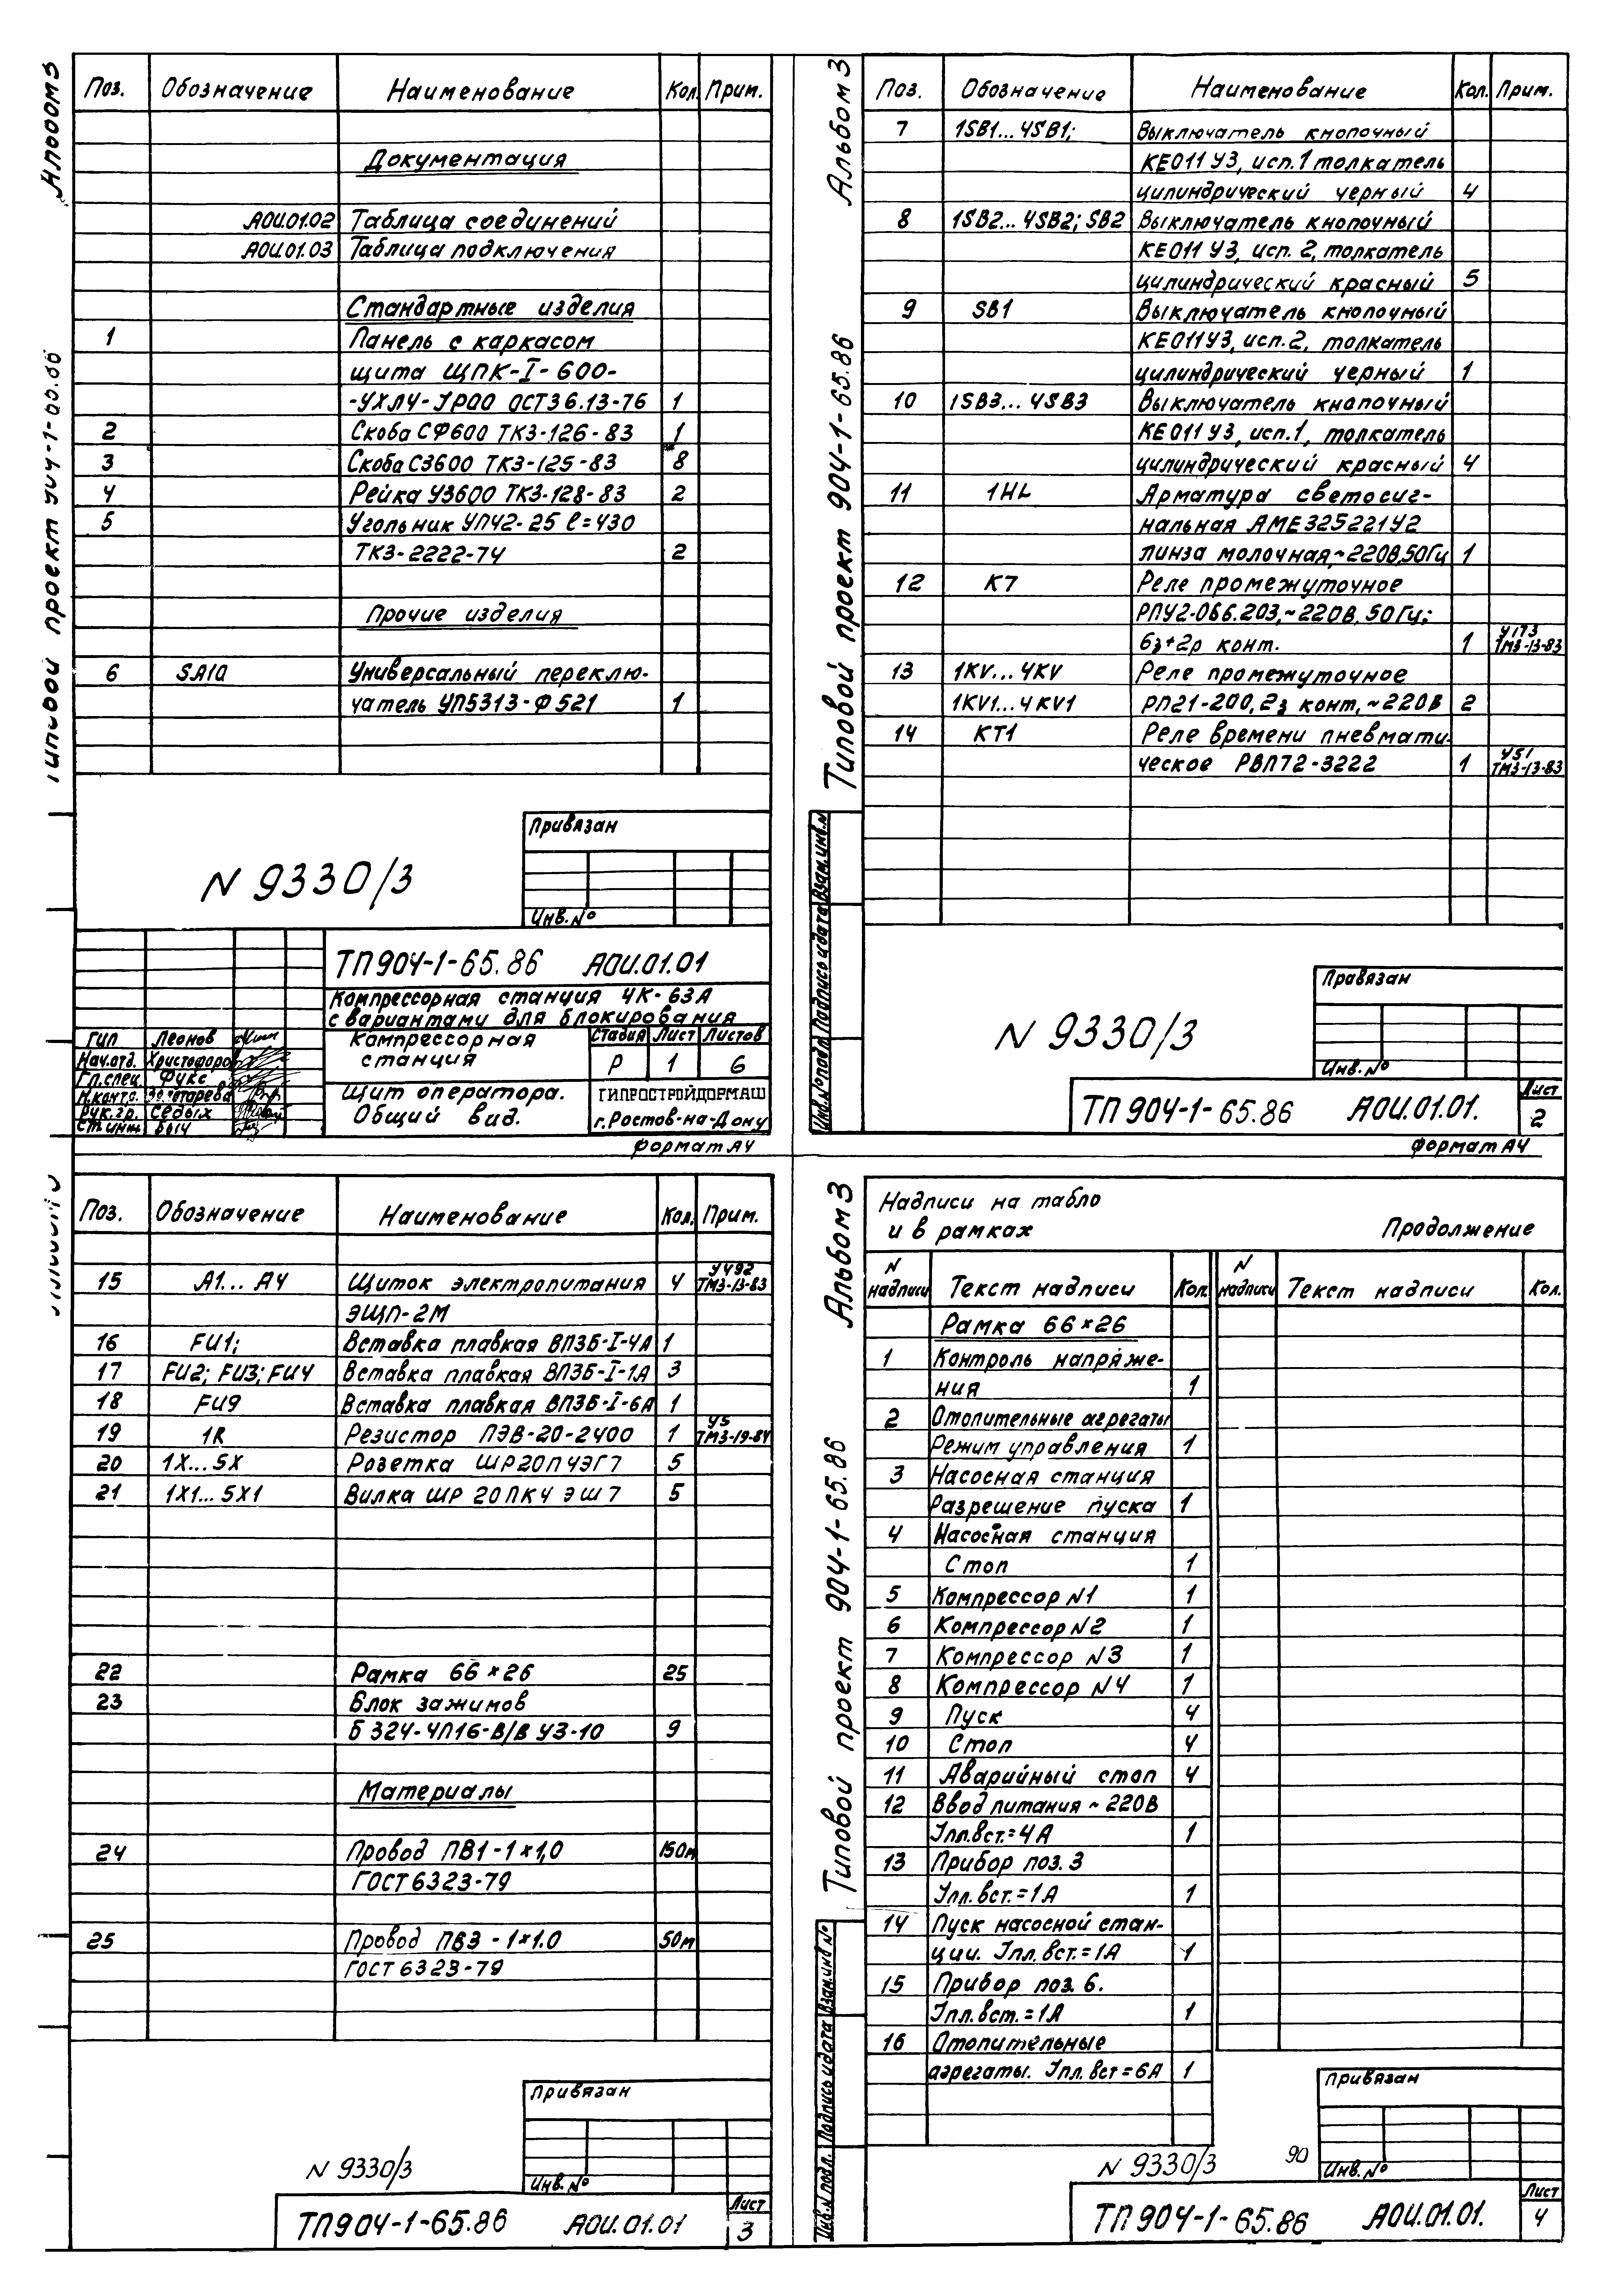 Альбом 3
Типовой проект 904-1-65.86
Поз. Обозначение Наименование Кол. Прим.
Документация
АОИ.01.02 Таблица соединений
АОИ.01.03 Таблица подключения
Стандартные изделия
1 Панель с каркасом
щита ЩПК-I-600-
-УХЛ4-IP00 ОСТ36.13-76 1
2 Скоба СФ600 ТК3-126-83 1
3 Скоба С3600 ТК3-125-83 8
4 Рейка У3600 ТК3-128-83 2
5 Угольник УП42-25 ℓ=430
ТК3-2222-74 2
Прочие изделия
6 SA10 Универсальный переклю-
чатель УП5313-Ф521 1
Привязан
N 9330/3
Инв.№
ТП904-1-65.86 АОИ.01.01
Компрессорная станция 4К-63А
с вариантами для блокирования
ГИП Леонов
Нач.отд. Христофоров
Гл.спец. Фукс
Н.контр. Золотарева
Рук.гр. Седых
Ст.инж. Быч
Компрессорная
станция
Стадия Лист Листов
Р 1 6
Щит оператора.
Общий вид.
ГИПРОСТРОЙДОРМАШ
г.Ростов-на-Дону
формат А4
Альбом 3
Типовой проект 904-1-65.86
Поз. Обозначение Наименование Кол. Прим.
7 1SB1...4SB1; Выключатель кнопочный
КЕ011У3, исп.1 толкатель
цилиндрический черный 4
8 1SB2...4SB2; SB2 Выключатель кнопочный
КЕ011У3, исп. 2, толкатель
цилиндрический красный 5
9 SB1 Выключатель кнопочный
КЕ011У3, исп.2, толкатель
цилиндрический черный 1
10 1SB3...4SB3 Выключатель кнопочный
КЕ011У3, исп.1, толкатель
цилиндрический красный 4
11 1HL Арматура светосиг-
нальная АМЕ325221У2
линза молочная,~220В,50Гц 1
12 К7 Реле промежуточное
РПУ2-066.203,~220В, 50Гц;
6з+2р конт. 1 У173 ТМ3-13-83
13 1KV...4KV Реле промежуточное
1KV1...4KV1 РП21-200, 2з конт, ~220В 2
14 КТ1 Реле времени пневмати-
ческое РВП72-3222 1 У51 ТМ3-13-83
Инв.№ подл. Подпись и дата Взам.инв.№
Привязан
N 9330/3
Инв.№
ТП904-1-65.86 АОИ.01.01. Лист
2
формат А4
Поз. Обозначение Наименование Кол. Прим.
15 А1...А4 Щиток электропитания 4 У492 ТМ3-13-83
ЭЩП-2М
16 FU1; Вставка плавкая ВП3Б-I-4А 1
17 FU2; FU3; FU4 Вставка плавкая ВП3Б-I-1А 3
18 FU9 Вставка плавкая ВП3Б-I-6А 1
19 1R Резистор ПЭВ-20-2400 1 У5 ТМ3-19-84
20 1Х...5Х Розетка ШР20П4ЭГ7 5
21 1Х1...5Х1 Вилка ШР 20ПК4 ЭШ7 5
22 Рамка 66×26 25
23 Блок зажимов
Б324-4П16-В/В У3-10 9
Материалы
24 Провод ПВ1-1×1,0 150м
ГОСТ 6323-79
25 Провод ПВ3-1×1.0 50м
ГОСТ 6323-79
Привязан
N 9330/3
Инв.№
ТП904-1-65.86 АОИ.01.01 Лист
3
Альбом 3
Типовой проект 904-1-65.86
Надписи на табло
и в рамках Продолжение
N надписи Текст надписи Кол. N надписи Текст надписи Кол.
Рамка 66×26
1 Контроль напряже-
ния 1
2 Отопительные агрегаты
Режим управления 1
3 Насосная станция
Разрешение пуска 1
4 Насосная станция
Стоп 1
5 Компрессор N1 1
6 Компрессор N2 1
7 Компрессор N3 1
8 Компрессор N4 1
9 Пуск 4
10 Стоп 4
11 Аварийный стоп 4
12 Ввод питания ~220В
Iпл.вст.=4А 1
13 Прибор поз. 3
Iпл.вст.=1А 1
14 Пуск насосной стан-
ции. Iпл.вст.=1А 1
15 Прибор поз. 6.
Iпл.вст.=1А 1
16 Отопительные
агрегаты. Iпл.вст=6А 1
Инв.N подл. Подпись и дата Взам.инв№
Привязан
N 9330/3 90
Инв.№
ТП904-1-65.86 АОИ.01.01. Лист
4